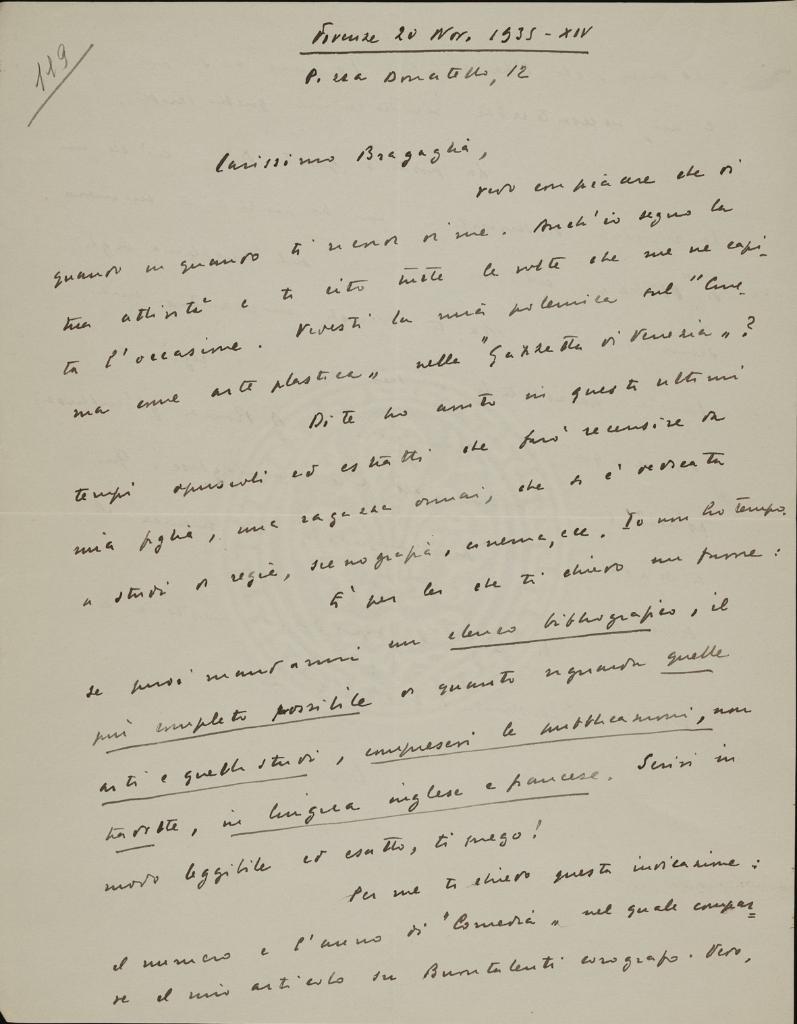 119
Firenze 20 Nov. 1935 - XIV
P.zza Donatello, 12
Carissimo Bragaglia,
vedo con piacere che di
quando in quando ti ricordi di me. Anch'io seguo la
tua attività e ti cito tutte le volte che me ne capi-
ta l'occasione. Vedesti la mia polemica sul "Cine-
ma come arte plastica" nella "Gazzetta di Venezia"?
Di te ho avuto in questi ultimi
tempi opuscoli ed estratti che farò recensire da
mia figlia, una ragazza ormai, che si è dedicata
a studi di regia, scenografia, cinema, ecc. Io non ho tempo.
E' per lei che ti chiedo un favore:
se puoi mandarmi un elenco bibliografico, il
più completo possibile di quanto riguarda quelle
arti e quelli studi, compresevi le pubblicazioni, non
tradotte, in lingua inglese e francese. Scrivi in
modo leggibile ed esatto, ti prego!
Per me ti chiedo questa indicazione:
il numero e l'anno di "Comedia" nel quale compar=
se il mio articolo su Buontalenti corografo. Vedo,